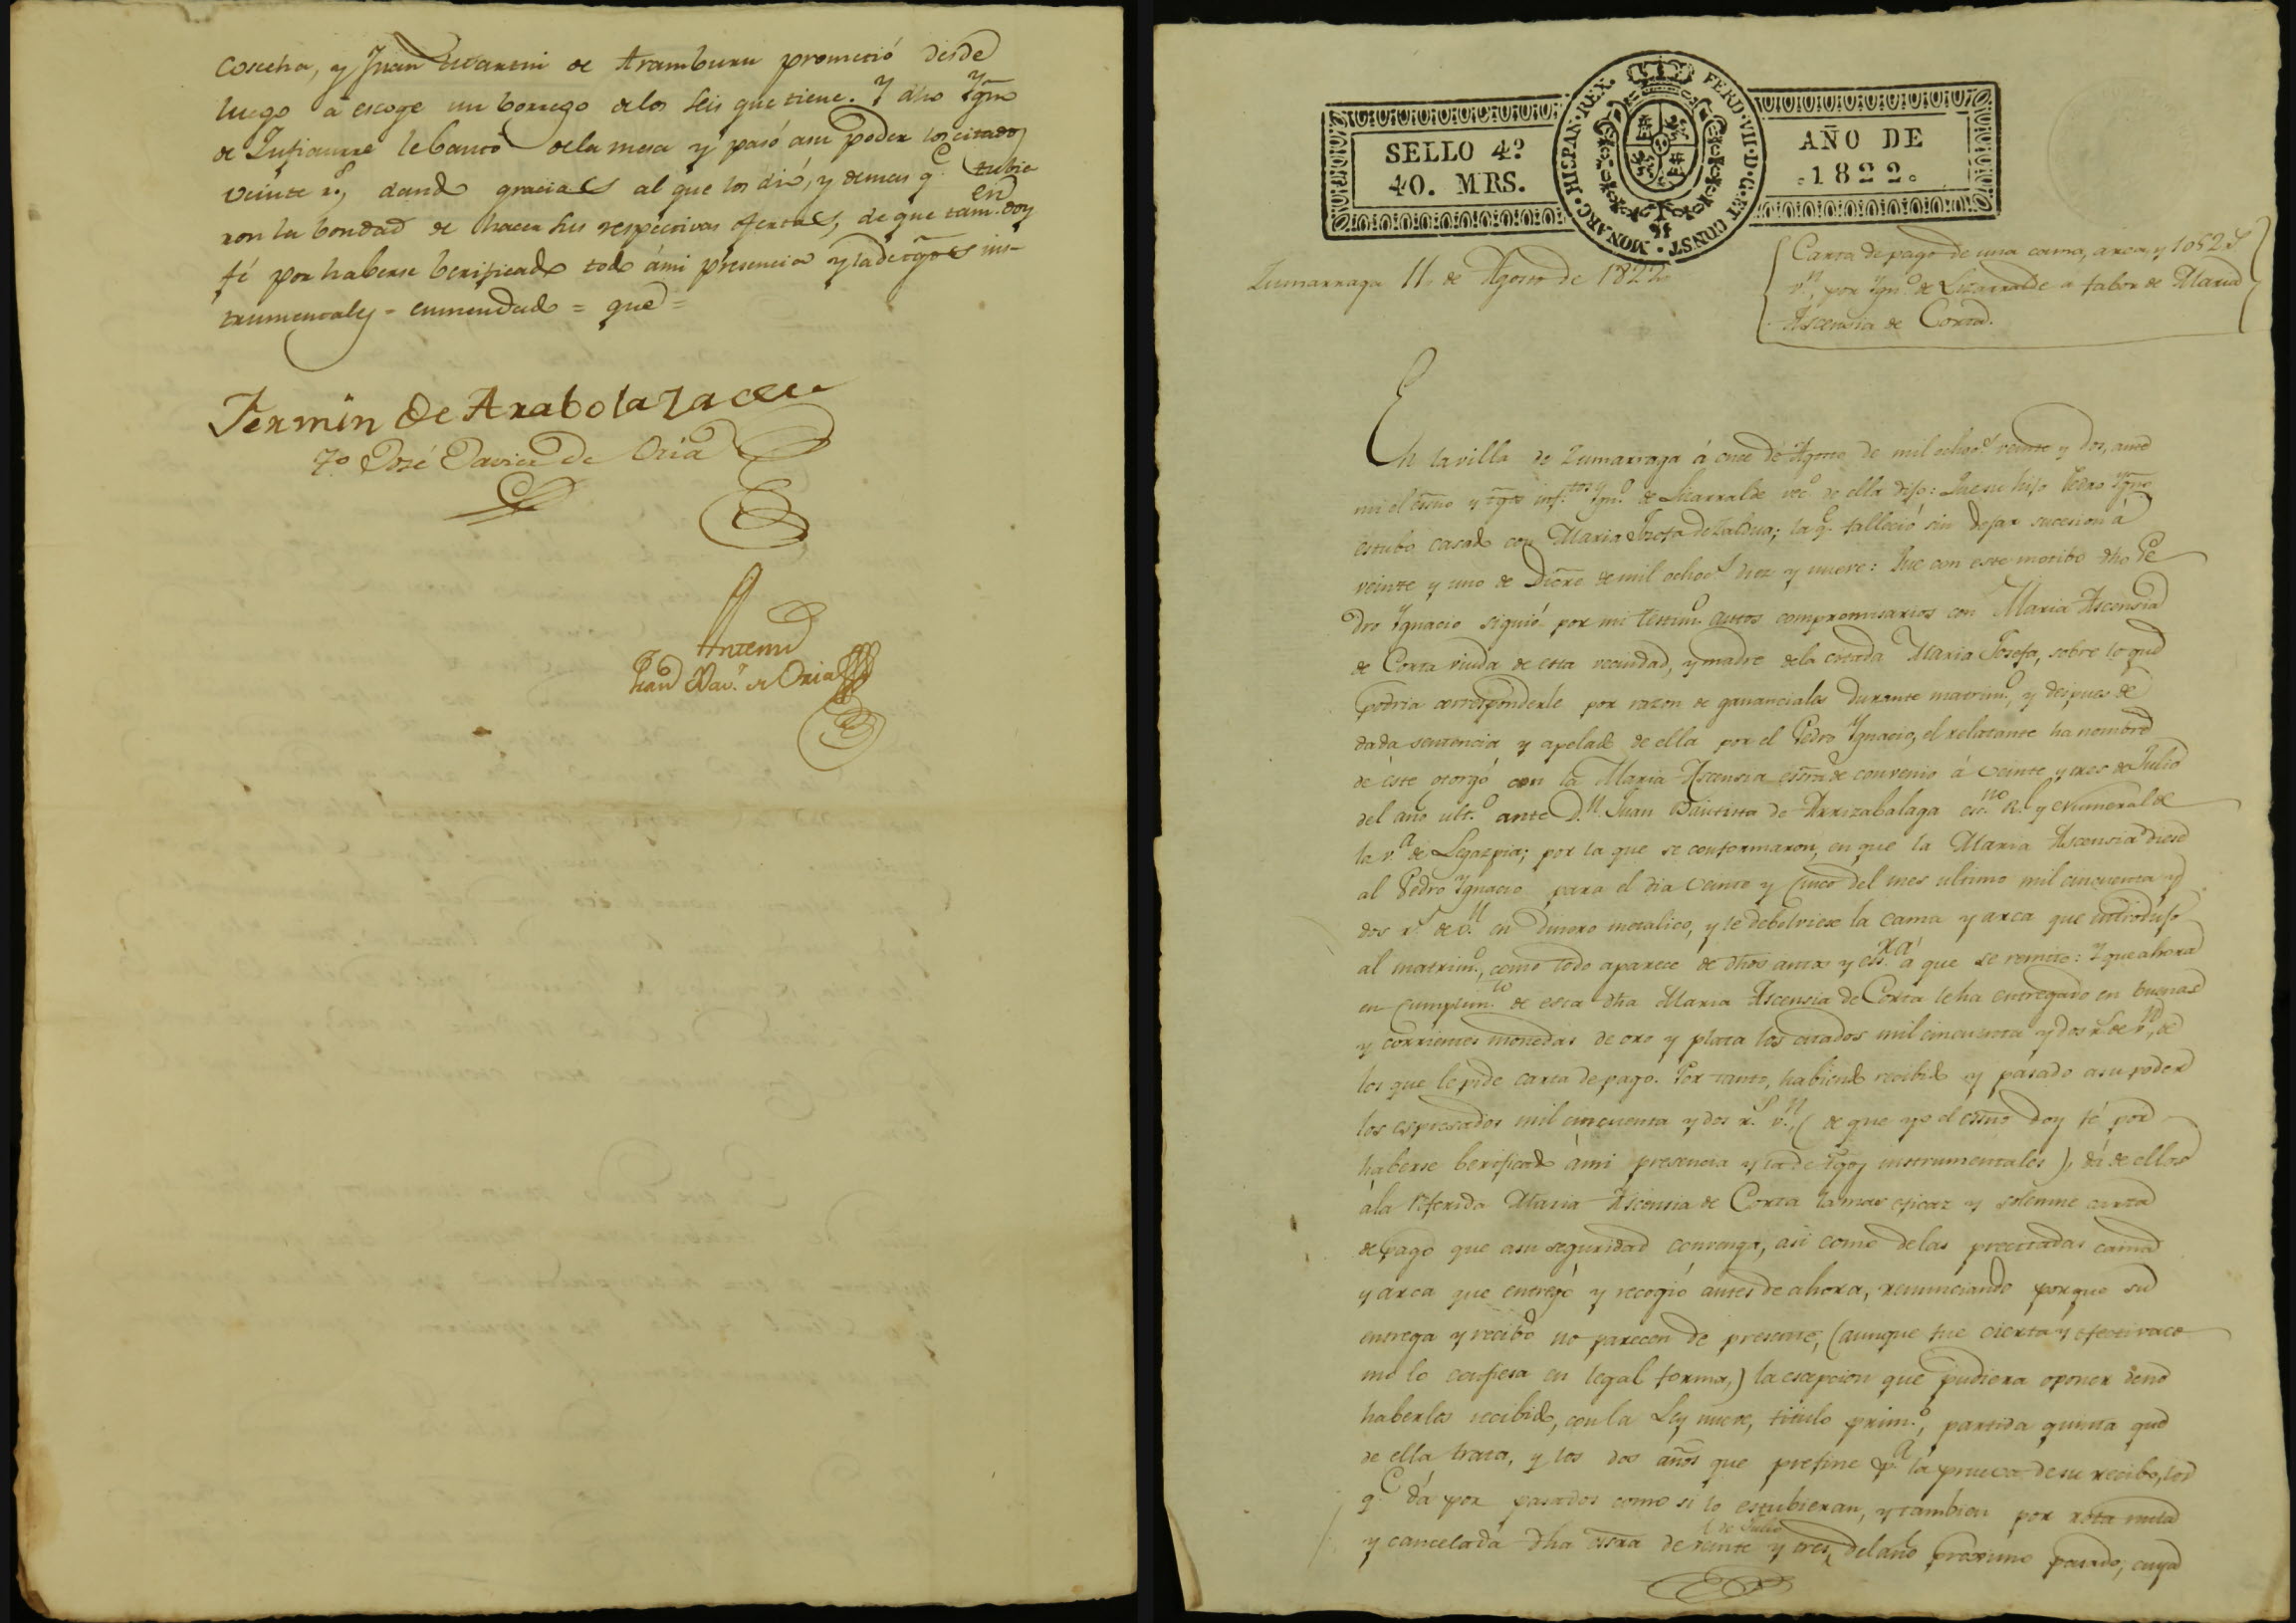 cosecha, y Juan Martin de Aramburu prometió desde
luego á escoge un borrego delos seis que tiene. Y dho Ygno
de lebantó dela mesa y pasó asu poder los citados
veinte rs, dando gracias al que los dió, y demas q.e tubie
ron la bondad de hacer sus respectivas ofertas, de que tam.en doy
fé por haberse berificado todo ámi presencia y la de tgos ins-
trumentales = enmendado = que =
Fermin de Arabolaza
To José Xavier de Oria
Antemi
Juan Xav.r de Oria
MONARC · HISPAN · REX · FERD · VII · D · G · ET CONST ·
SELLO 4º
40. MRS.
AÑO DE
1822.
Zumarraga 11. de Agosto de 1822
Carta de pago de una cama, arca, y 1052 rs
v.n, por Ygn.o de Lizarralde a fabor de Maria
Ascensia de Corta.
En la villa de Zumarraga á once de Agosto de mil ochos veinte y dos, ante
mi el essno y tgos insf.tos Ygn.o de Lizarralde vec.o de ella dijo: Que su hijo Pedro Ygno
estubo casado con Maria Josefa de Zaldua; la q.e falleció sin dejar sucesion á
veinte y uno de Dicre de mil ochos diez y nueve: Que con este motibo dho Pe
dro Ygnacio siguió por mi testim.o autos compromisarios con Maria Ascensia
de Corta viuda de esta vecindad, y madre dela citada Maria Josefa, sobre lo que
podria corresponderle por razon de gananciales durante matrim.o, y despues de
dada sentencia y apelado de ella por el Pedro Ygnacio, el relatante ha nombre
de este otorgó con la Maria Ascensia essra de convenio á veinte y tres de Julio
del año ult.o ante D.n Juan Bautista de Arrizabalaga esc.no R.l y Numeral de
la v.a de Legazpia; por la que se conformaron, en que la Maria Ascensia diese
al Pedro Ygnacio para el dia veinte y cinco del mes ultimo mil cincuenta y
dos rs de v.n en dinero metalico, y le debolviese la cama y arca que introdujo
al matrim.o, como todo aparece de dhos autos y ess.ra á que se remite: Y que ahora
en cumplim.to de esta dha Maria Ascensia de Corta le ha entregado en buenas
y corrientes monedas de oro y plata los citados mil cincuenta y dos rs de v.n, de
los que le pide carta de pago. Por tanto, habiendo recibido y pasado asu poder
los espresados mil cincuenta y dos rs v.n, (de que yo el essno doy fé por
haberse berificado ámi presencia y la de tgos instrumentales), dá de ellos
ála referida Maria Ascensia de Corta la mas eficaz y solemne carta
de pago que asu seguridad convenga, asi como delas precitadas cama
y arca que entregó y recogió antes de ahora, renunciando porque su
entrega y recibo no parecen de presente, (aunque fue cierta y efectiva co
mo lo confiesa en legal forma,) la escepcion que pudiera oponer deno
haberlos recibido, con la Ley nueve, titulo prim.o, partida quinta que
de ella trata, y los dos años que prefine p.a la prueva de su recibo, los
q.e dá por pasados como si lo estubieran, y tambien por rota nula
y cancelada dha essra de veinte y tres de Julio del año proximo pasado, cuya